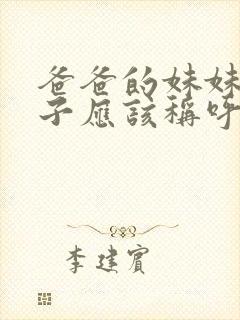 爸爸的妹妹
子应该稱呼
李建賓